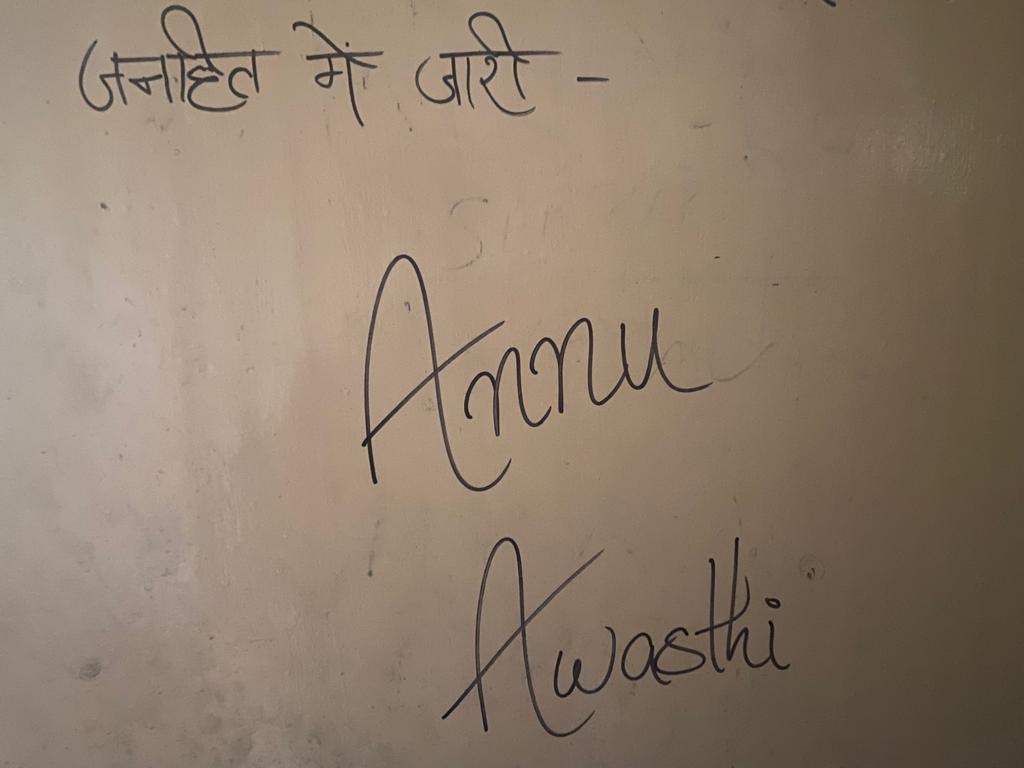 जनहित में जारी -
Annu
Awasthi